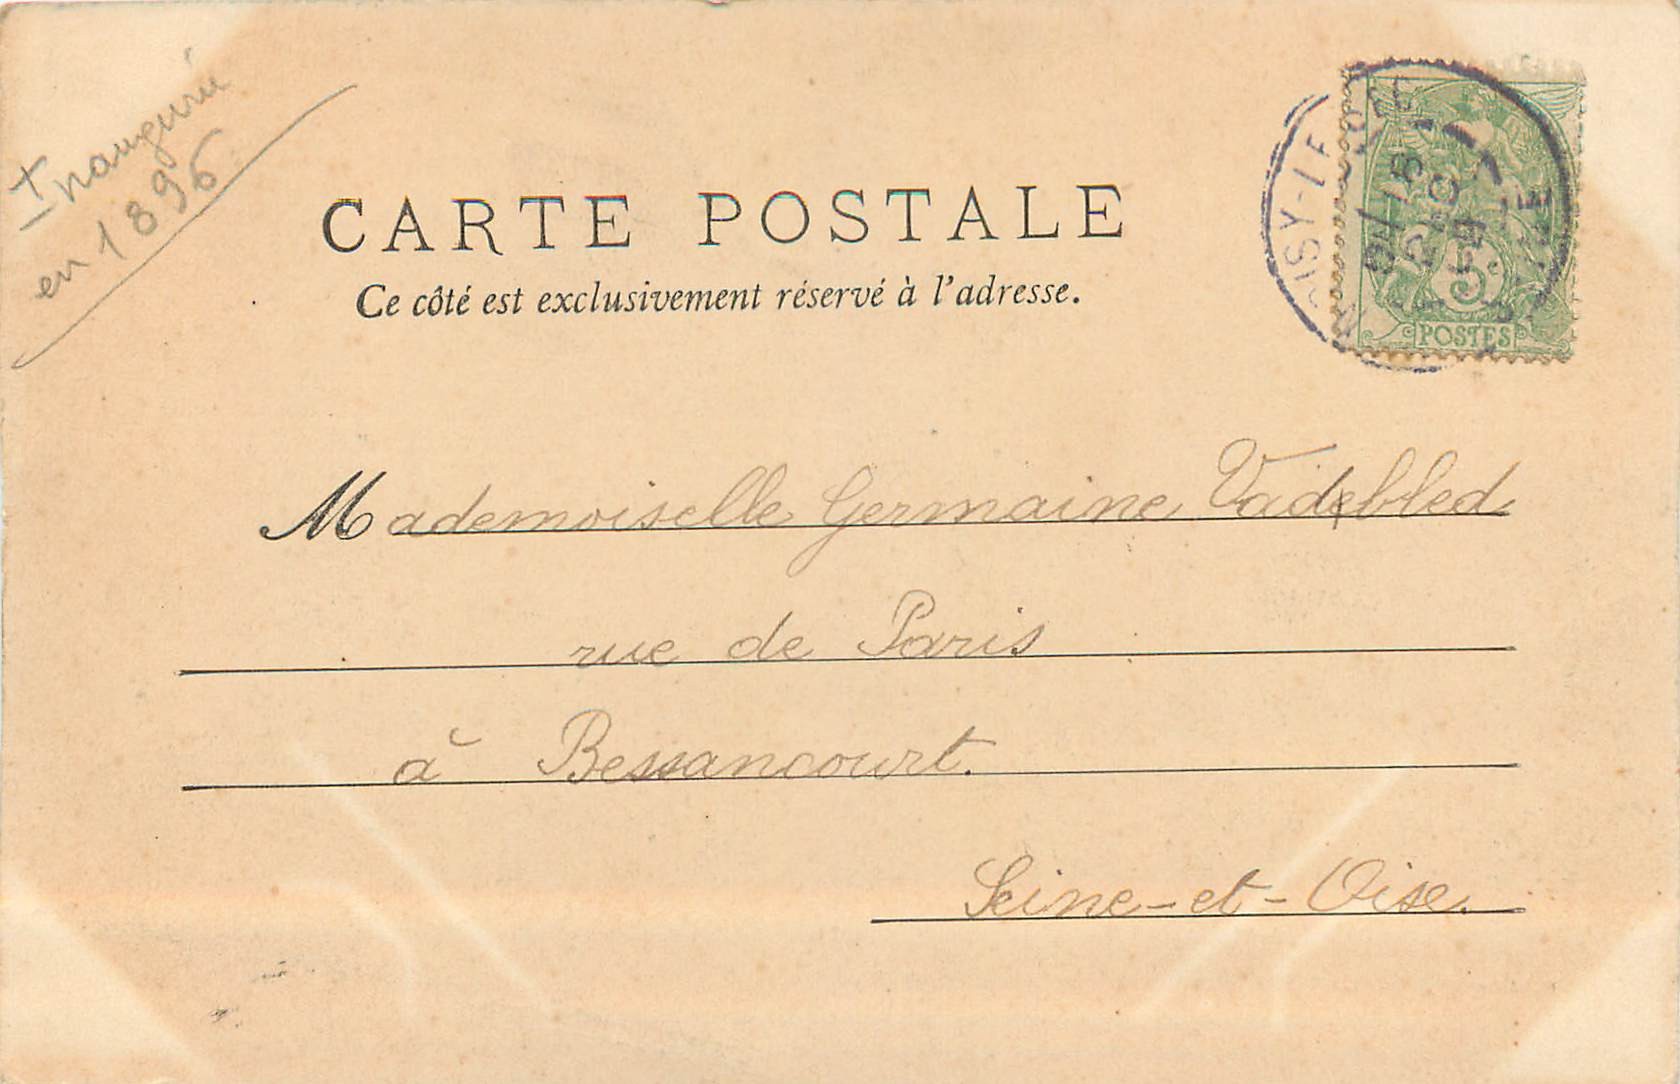 Inauguré
en 1896
CARTE POSTALE
Ce côté est exclusivement réservé à l'adresse.
5c
POSTES
Mademoiselle Germaine Vadebled
rue de Paris
à Bessancourt.
Seine-et-Oise.